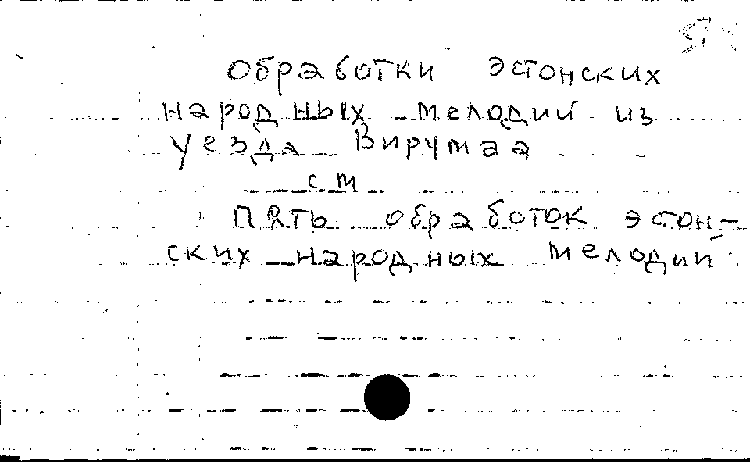 Обработки эстонских
народных мелодий из
уезда Вирумаа
см
Пять обработок эстон-
ских народных мелодий